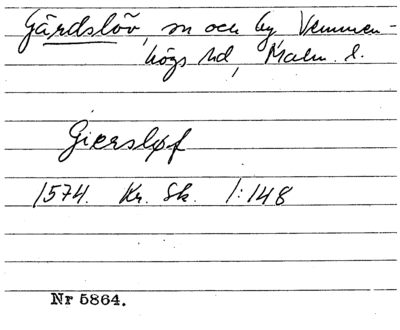 Gärdslöv, sn och by, Vemmen-
högs hd, Malm. l.
Giersløf
1574. Kr. Sk. 1:148
Nr 5864.